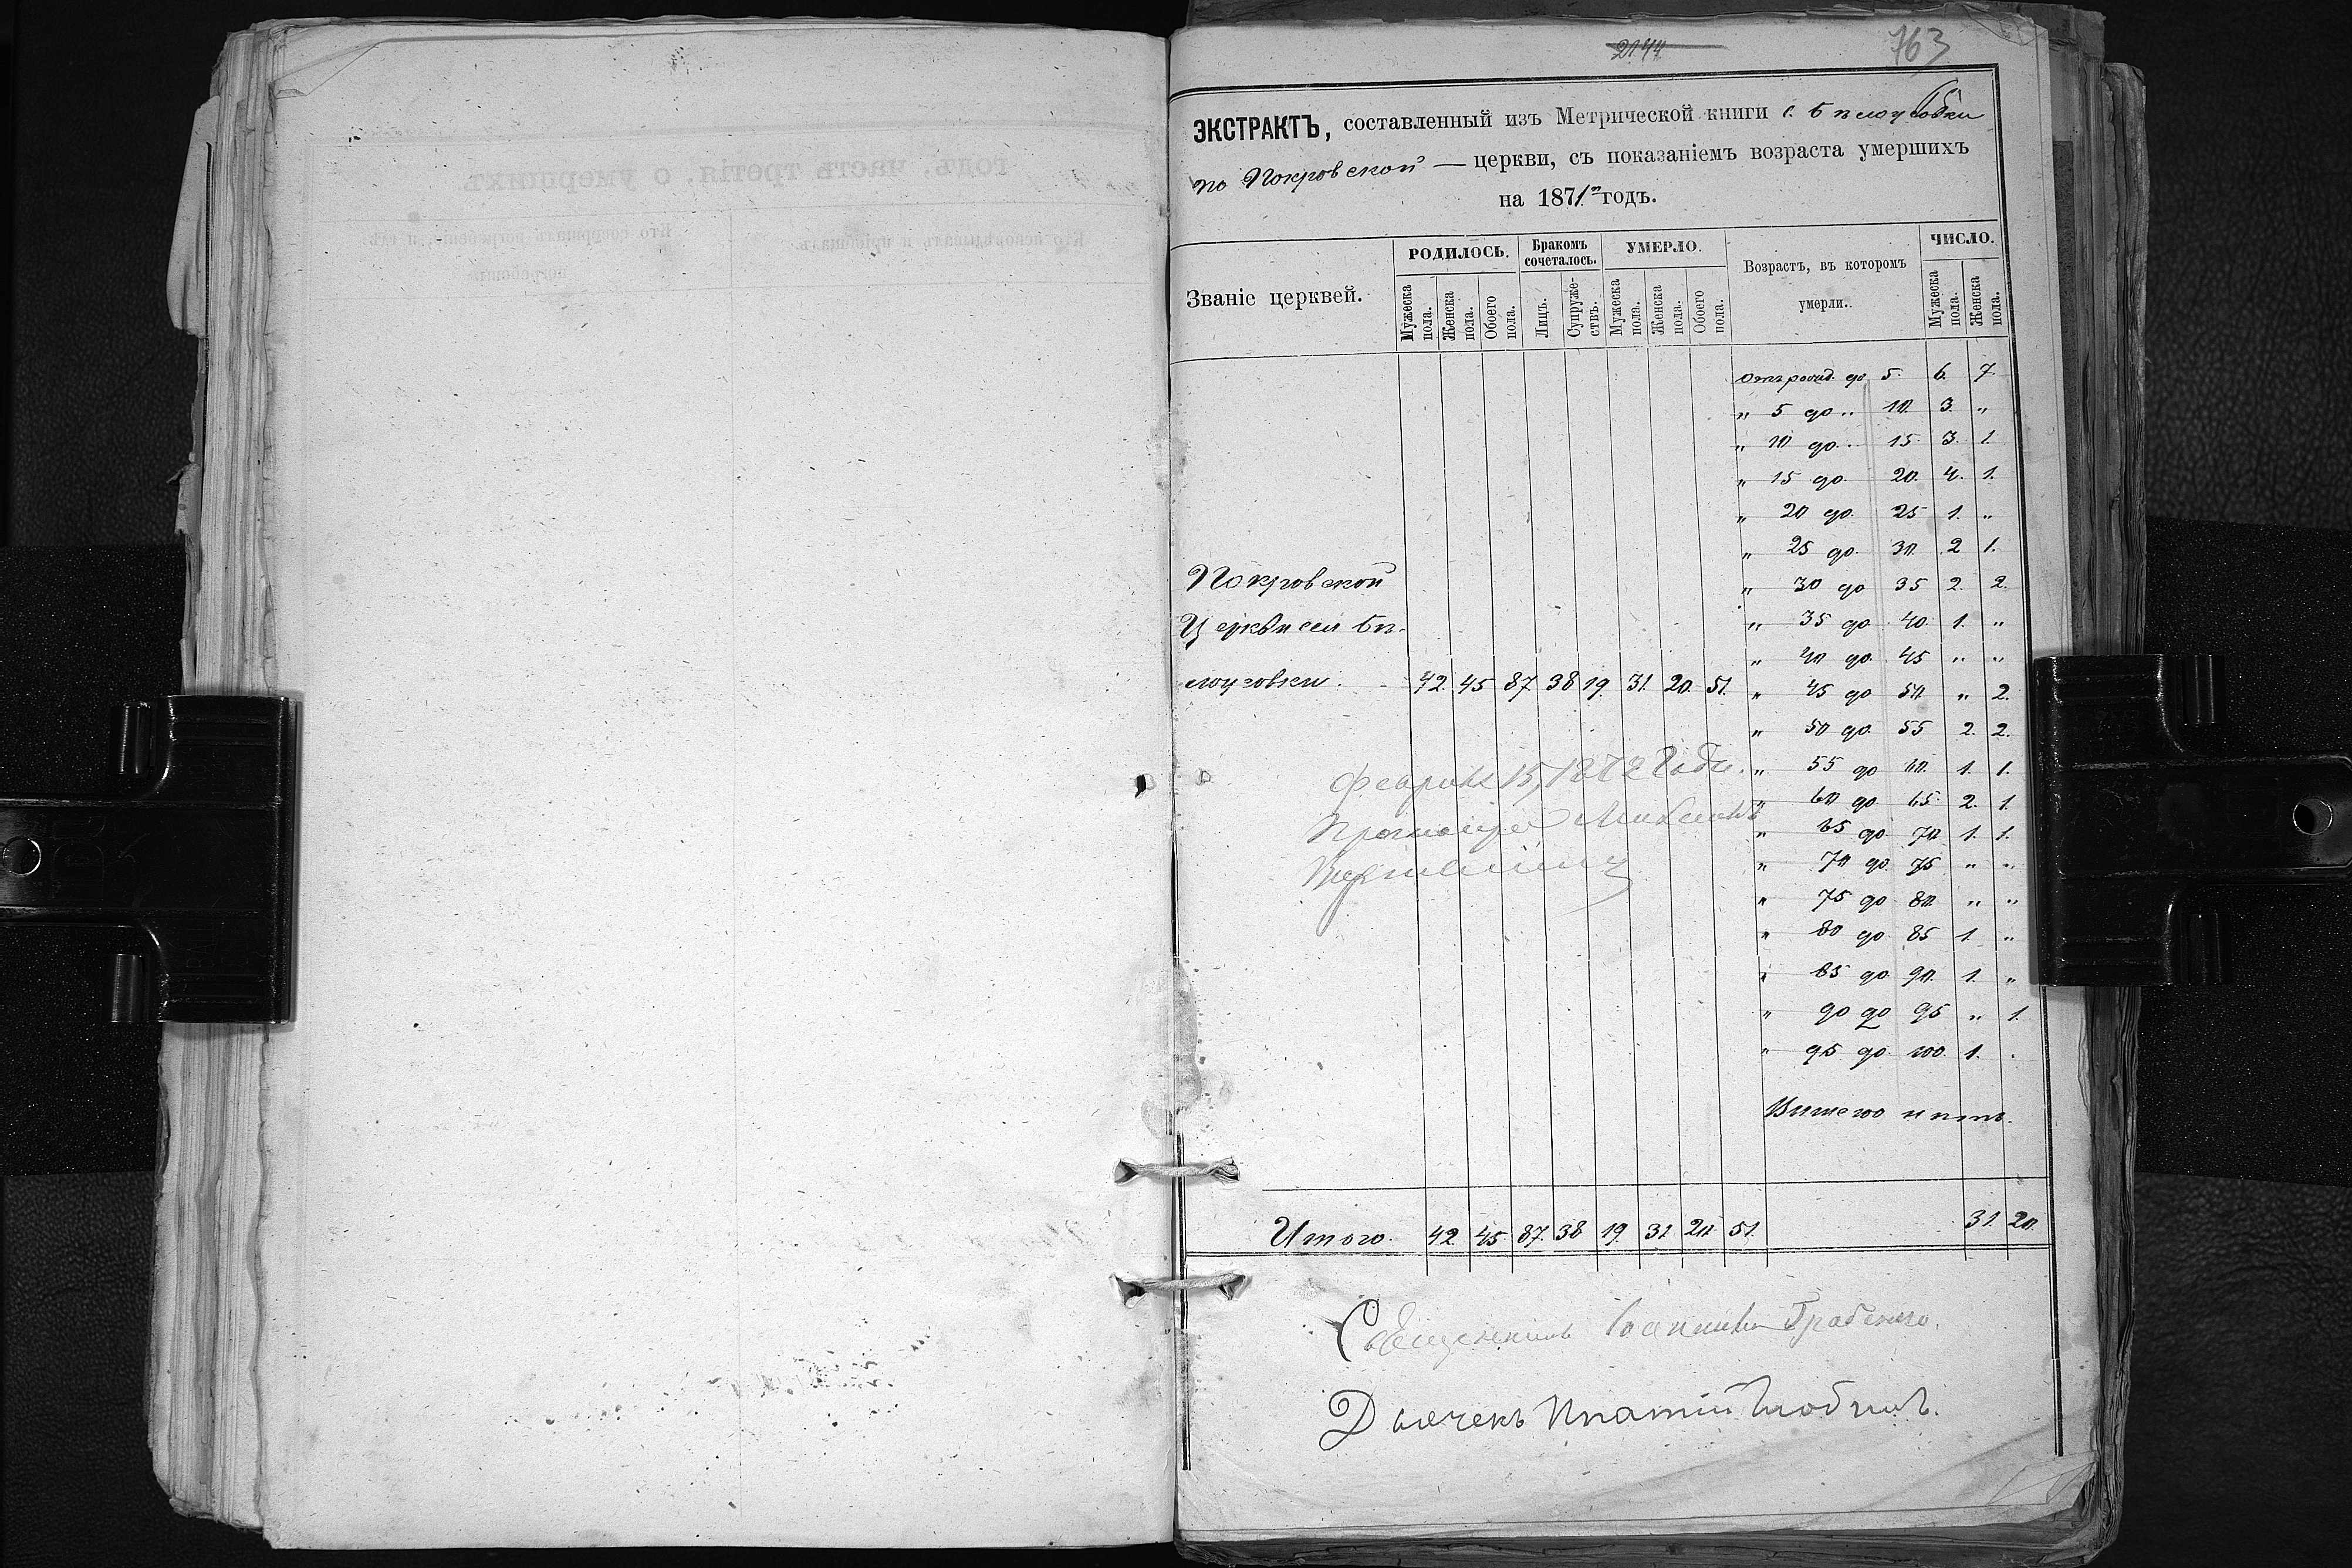 2144
763
ЭКСТРАКТЪ, составленный изъ Метрической книги с. Бѣлоусовки
по Покровской — церкви, съ показаніемъ возраста умершихъ
на 1871 годъ.
Званіе церквей.
РОДИЛОСЬ.
Мужеска пола.
Женска пола.
Обоего пола.
Бракомъ сочеталось.
Лицъ.
Супружествъ.
УМЕРЛО.
Мужеска пола.
Женска пола.
Обоего пола.
Возрастъ, въ которомъ умерли.
ЧИСЛО.
Мужеска пола.
Женска пола.
Отъ рожд. до 5. 6. 7.
" 5 до " 10. 3. "
" 10 до " 15. 3. 1.
" 15 до 20. 4. 1.
" 20 до 25 1. "
" 25 до 30. 2 1.
" 30 до 35 2. 2.
" 35 до 40. 1. "
" 40 до 45 " "
" 45 до 50. " 2.
" 50 до 55 2. 2.
" 55 до 60. 1. 1.
" 60 до 65. 2. 1.
" 65 до 70. 1. 1.
" 70 до 75 " "
" 75 до 80. " "
" 80 до 85 1. "
" 85 до 90. 1. "
" 90 до 95 " 1.
" 95 до 100. 1. .
Вышего нѣтъ.
Покровской
Церкви села Бѣ-
лоусовки. 42. 45 87 38 19. 31. 20. 51.
Февраля 15, 1872 Года.
Протоіерей Михаилъ
Итого. 42 45 87. 38 19. 31 20 51. 31. 20.
Священникъ Іоаннъ
Дьячекъ Ипатій
годъ, часть третія, о умершихъ.
Кто исповѣдывалъ и пріобщалъ.
Кто совершалъ погребеніе и гдѣ погребены.